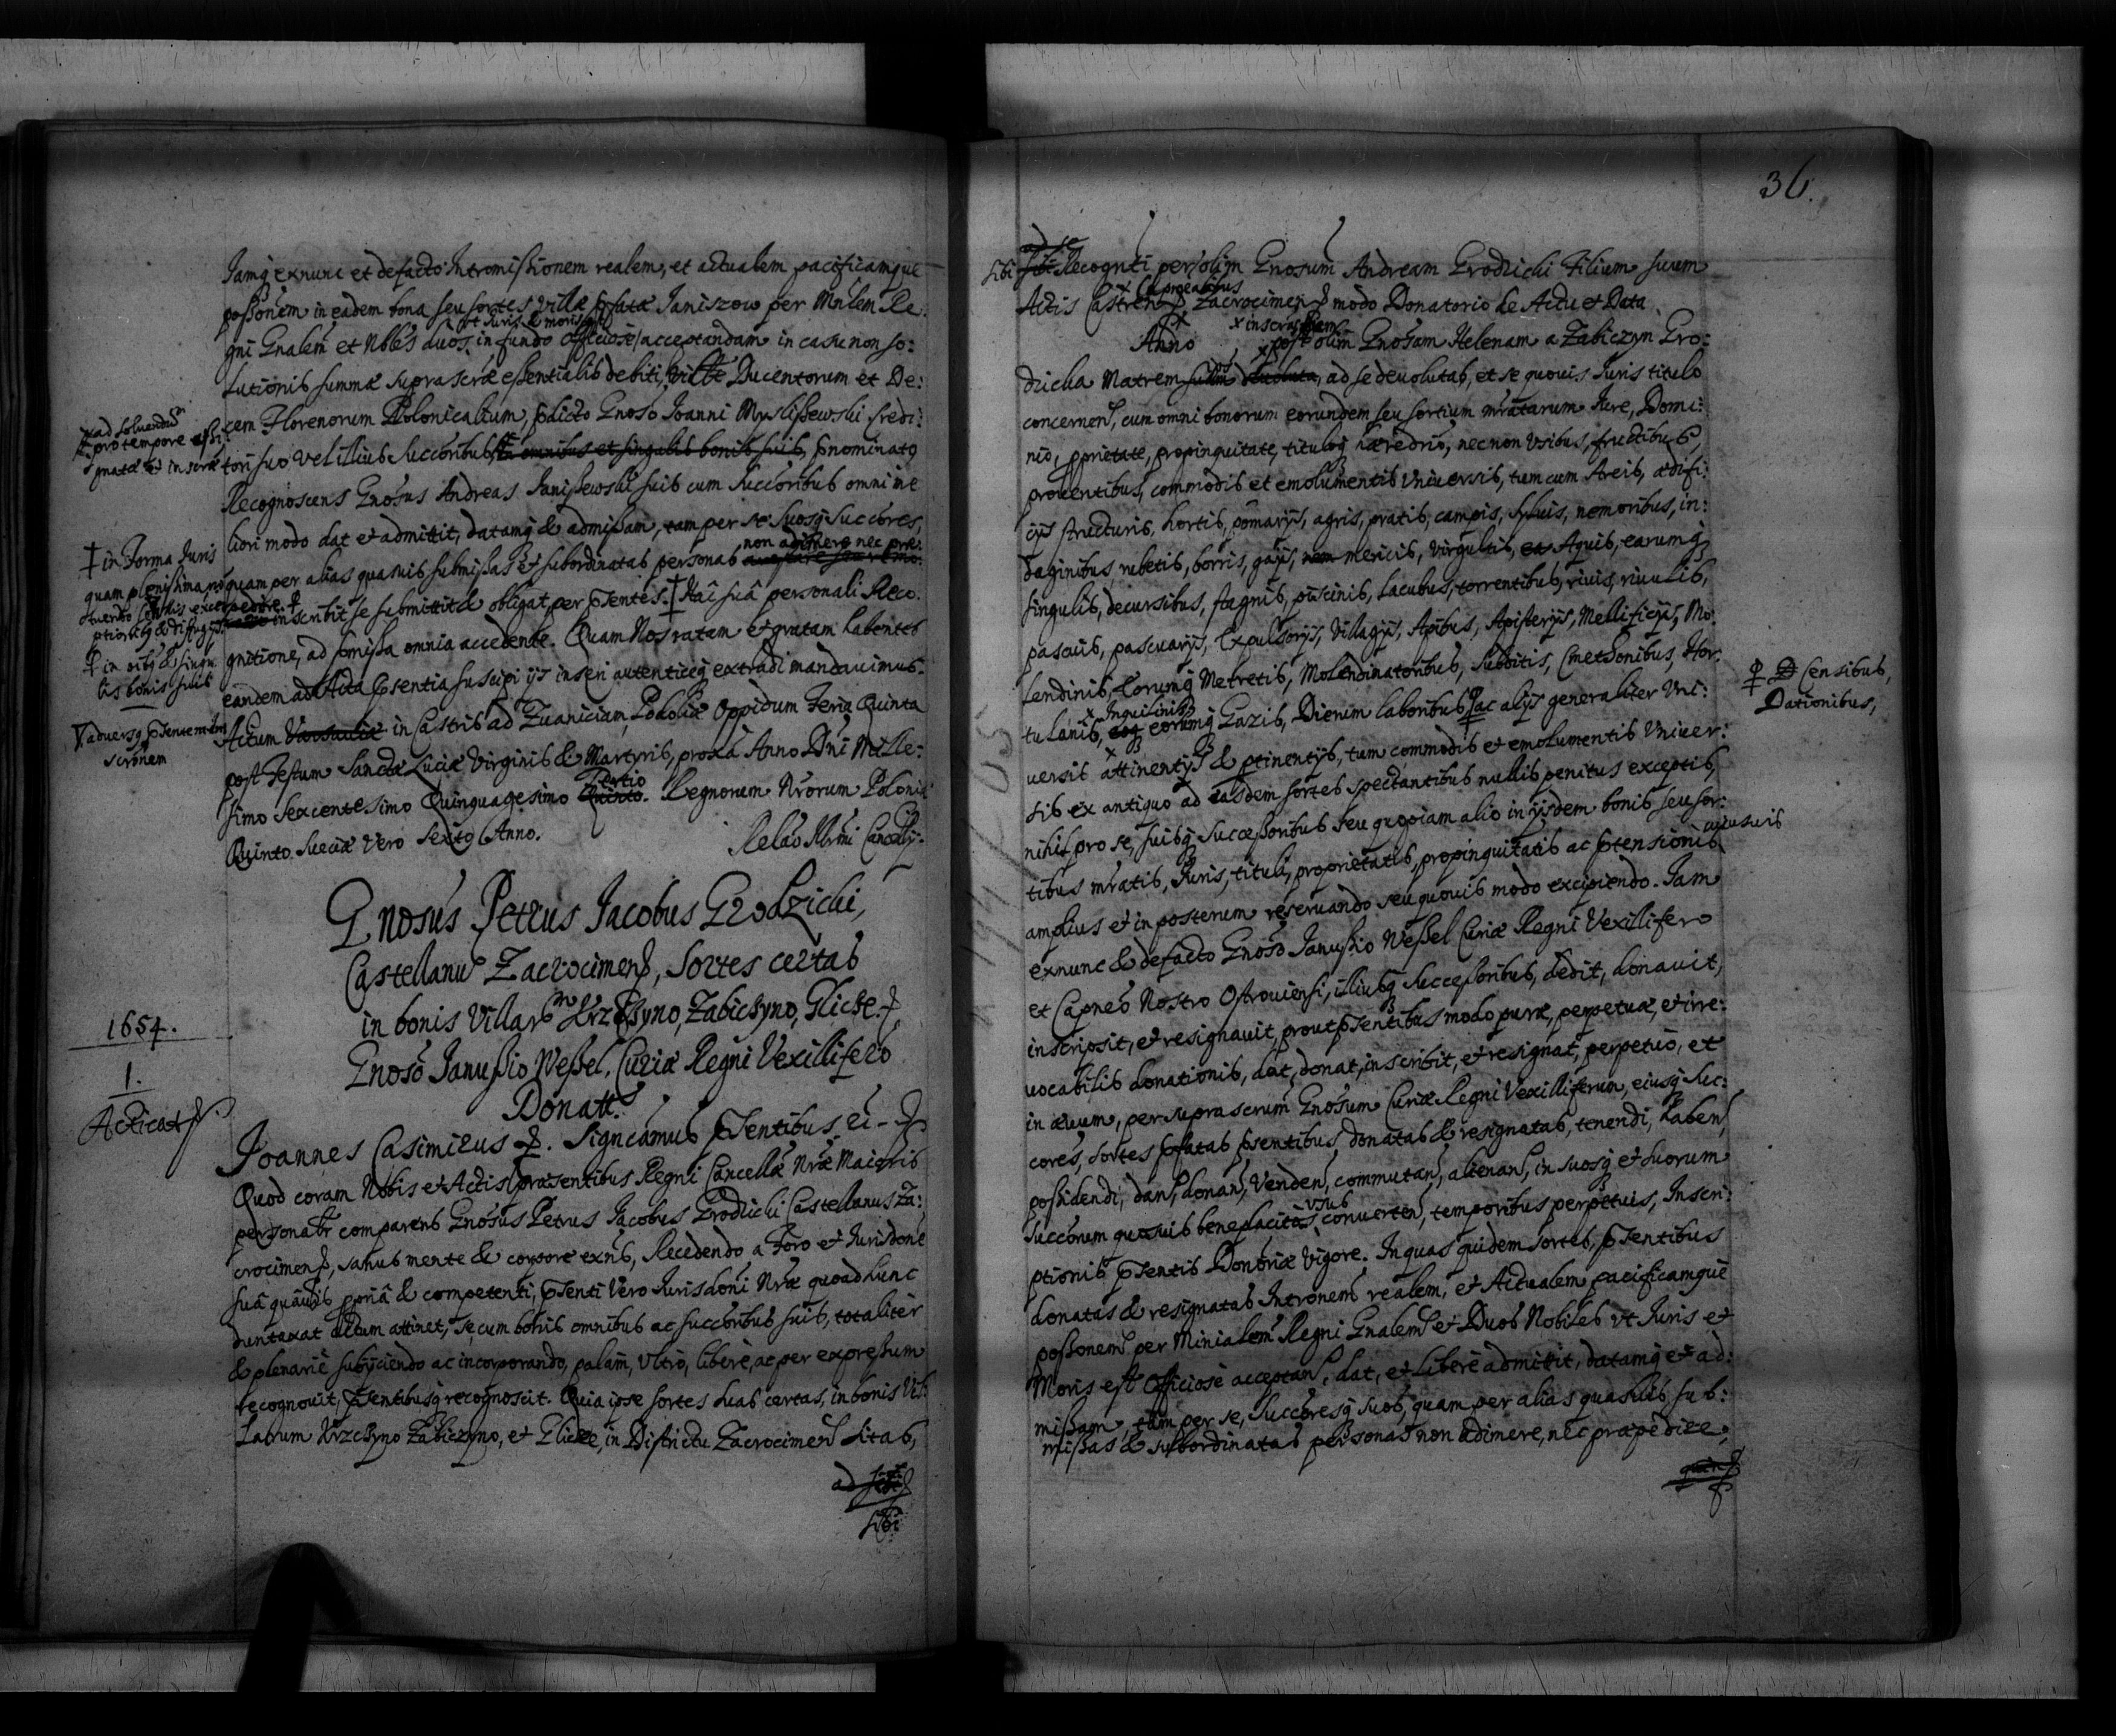 Jamq exnunc et defacto Intromissionem realem, et actualem pacificamque
possonem in eadem bona seu sortes villæ pfatæ Janiszow per Mnlem Re:
ut Juris & moris est
gni Gnalem et Nbles duos, in fundo officiose acceptandam in casu non so:
lutionis summæ suprascræ essentialis debiti, Mille Ducentorum et De:
cem Florenorum Polonicalium, pdicto Gnoso Joanni Myslissewski Credi:
tori suo vel illius succoribus, in omnibus et singulis bonis suis, pnominato
Recognoscens Gnosus Andreas Janissewski suis cum succoribus omni me
liori modo dat et admittit, datamq & admissam, tam per se suosq succores,
non adimere nec præ:
quam per alias quasvis submissas et subordinatas personas
inscribit se submittit & obligat per psentes. Hac sua personali Reco:
gnitione, ad pmissa omnia accedente. Quam Nos ratam et gratam habentes
eandem ad Acta psentia suscipi ijs inseri autenticeq extradi mandavimus.
Actum Varsaviæ in Castris ad Zwaniciam, Podoliæ Oppidum Feria Quinta
post Festum Sanctæ Luciæ Virginis & Martyris, proxa Anno Dni Mille:
Tertio
simo Sexcentesimo Quinquagesimo Quinto. Regnorum Nrorum Poloniæ
Quinto Sueciæ vero Sexto Anno.
Relao Illrmi Cancellrij:
ad solvendum
pro tempore assi
gnatæ et inscræ
in Forma Juris
quam plenissima,
in oibq & singu
lis bonis suis
adversq psentem In
scronem
Gnosus Petrus Jacobus Grodzicki,
Castellanus Zacrocimens, Sortes certas
in bonis Villarum Krzczyno, Zabiczyno, Glicze
Gnoso Janussio Wessel, Curiæ Regni Vexillifero
Donatt.
1654.
1.
Acticat
Joannes Casimirus. Signcamus psentibus
Quod coram Nobis et Actis præsentibus Regni Cancellæ Nræ Maioris
personalr comparens Gnosus Petrus Jacobus Grodzicki Castellanus Za:
crocimens, sanus mente & corpore exns, Recedendo a Foro et Jurisdone
sua quavis ppria & competenti, psenti vero Jurisdoni Nræ quoad hunc
duntaxat actum attinet, se cum bonis omnibus ac succoribus suis, totaliter
& plenarie subijciendo ac incorporando, palam, ultro, libere, ac per expressum
recognovit, psentibusq recognoscit. Quia ipse sortes suas certas, in bonis Vil:
larum Krzczyno Zabiczyno, et Glicze, in Districtu Zacrocimen sitas,
ad se
sibi
36.
sibi Recogniti per olim Gnosum Andream Grodzicki Filium suum
Actis Castren Zacrocimen modo Donatorio de Actu et Data
Anno post olim Gnosam Helenam a Zabiczyn Gro:
dzicka Matrem ad se devolutas, et se quovis Juris titulo
concernen, cum omni bonorum eorundem seu sortium mratarum Jure, Domi:
nio, pprietate, propinquitate, tituloq hæredrio, nec non usibus, fructibus,
proventibus, commodis et emolumentis universis, tum cum Areis, ædifi:
cijs structuris, hortis, pomarijs, agris, pratis, campis, sylvis, nemoribus, in:
daginibus, rubetis, borris, gajis, mericis, virgultis, Aquis, earumq
singulis, decursibus, stagnis, piscinis, lacubus, torrentibus, rivis, rivulis,
pascuis, pascuarijs, Expulsorijs, Villagijs, Apibus, Apisterijs, Mellificijs, Mo:
lendinis, Eorumq Metretis, Molendinatoribus, Subditis, Cmethonibus, Hor:
Inquilinis
tulanis, eorumq Gazis, Dierum laboribus ac alijs generaliter Uni:
Censibus,
Dationibus,
versis attinentijs & ptinentijs, tum commodis et emolumentis Univer:
sis ex antiquo ad easdem sortes spectantibus nullis penitus exceptis,
nihil pro se, suisq successoribus seu quopiam alio in ijsdem bonis seu sor:
cujusvis
tibus mratis, Juris, tituli, proprietatis, propinquitatis ac ptensionis
amplius et in posterum reservando seu quovis modo excipiendo. Jam
exnunc & defacto Gnoso Janussio Wessel Curiæ Regni Vexillifero
et Capneo Nostro Ostroviensi, illiusq successoribus, dedit, donavit,
inscripsit, et resignavit, prout psentibus modo puræ, perpetuæ, et irre:
vocabilis donationis, dat, donat, inscribit, et resignat, perpetuo, et
in ævum, per suprascrum Gnosum Curiæ Regni Vexilliferum, eiusq suc:
cores, sortes pfatas psentibus, donatas & resignatas, tenendi, haben,
possidendi, dan, donan, venden, commutan, alienan, in suosq et suorum
usus
succorum quosvis beneplacitos converten, temporibus perpetuis, Inscri:
ptionis psentis Dontriæ vigore. In quas quidem sortes, psentibus
donatas & resignatas Intronem realem, et Actualem pacificamque
possonem per Minialem Regni Gnalem et Duos Nobiles ut Juris et
Moris est Officiose acceptan, dat, et libere admittit, datamq et ad:
missam, tam per se, succoresq suos, quam per alias quasvis sub:
missas & subordinatas personas non adimere, nec præpedire,